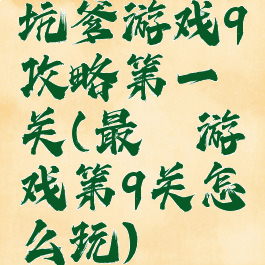 坑爹游戏9
攻略第一
关(最 游
戏第9关怎
么玩)